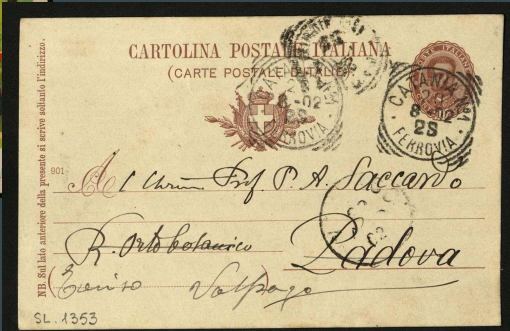 CARTOLINA POSTALE ITALIANA
(CARTE POSTALE D'ITALIE)
CATANIA
8-02
2S
FERROVIA
NB. Sul lato anteriore della presente si scrive soltanto l'indirizzo.
901
Al Chiar. Prof. P. A. Saccardo
R. Orto botanico
Padova
Treviso Volpago
SL. 1353